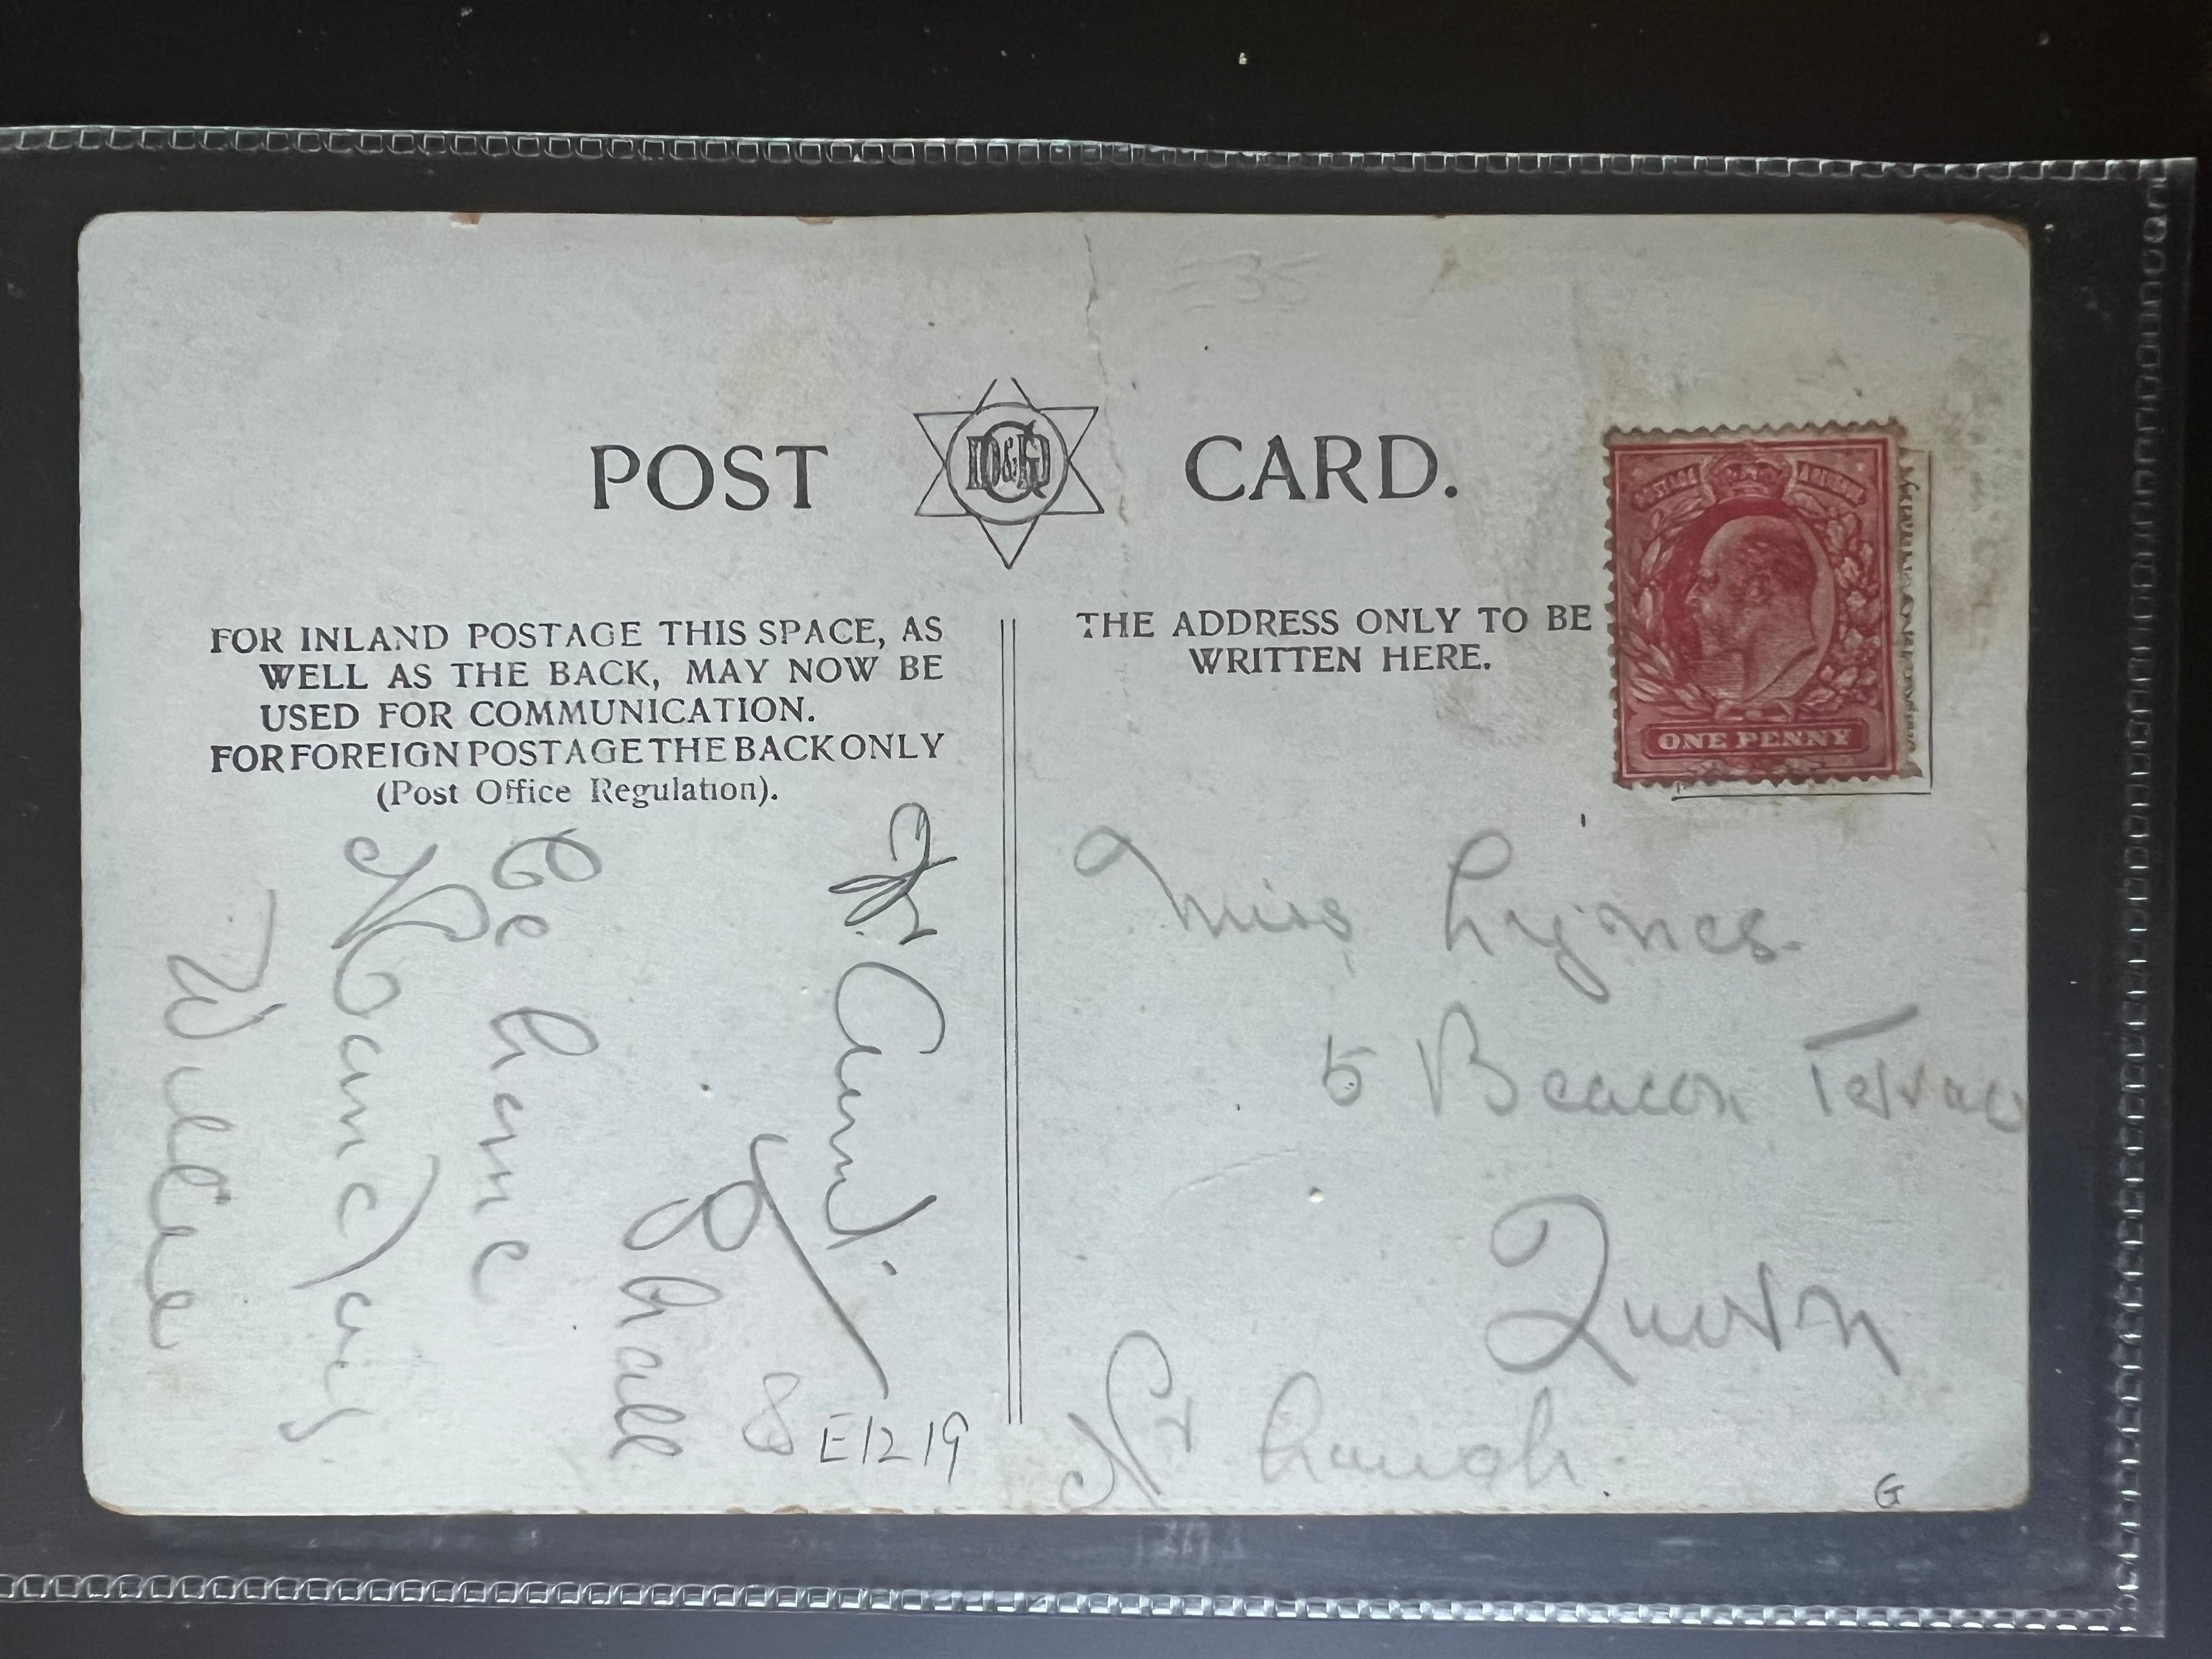 POST D&G CARD.
FOR INLAND POSTAGE THIS SPACE, AS
WELL AS THE BACK, MAY NOW BE
USED FOR COMMUNICATION.
FOR FOREIGN POSTAGE THE BACK ONLY
(Post Office Regulation).
THE ADDRESS ONLY TO BE
WRITTEN HERE.
POSTAGE REVENUE
ONE PENNY
Dr. Aunt
I shall
be home
Wed
Willie
Miss Lynes
5 Beacon Terrace
Nr
E1219
G
E35